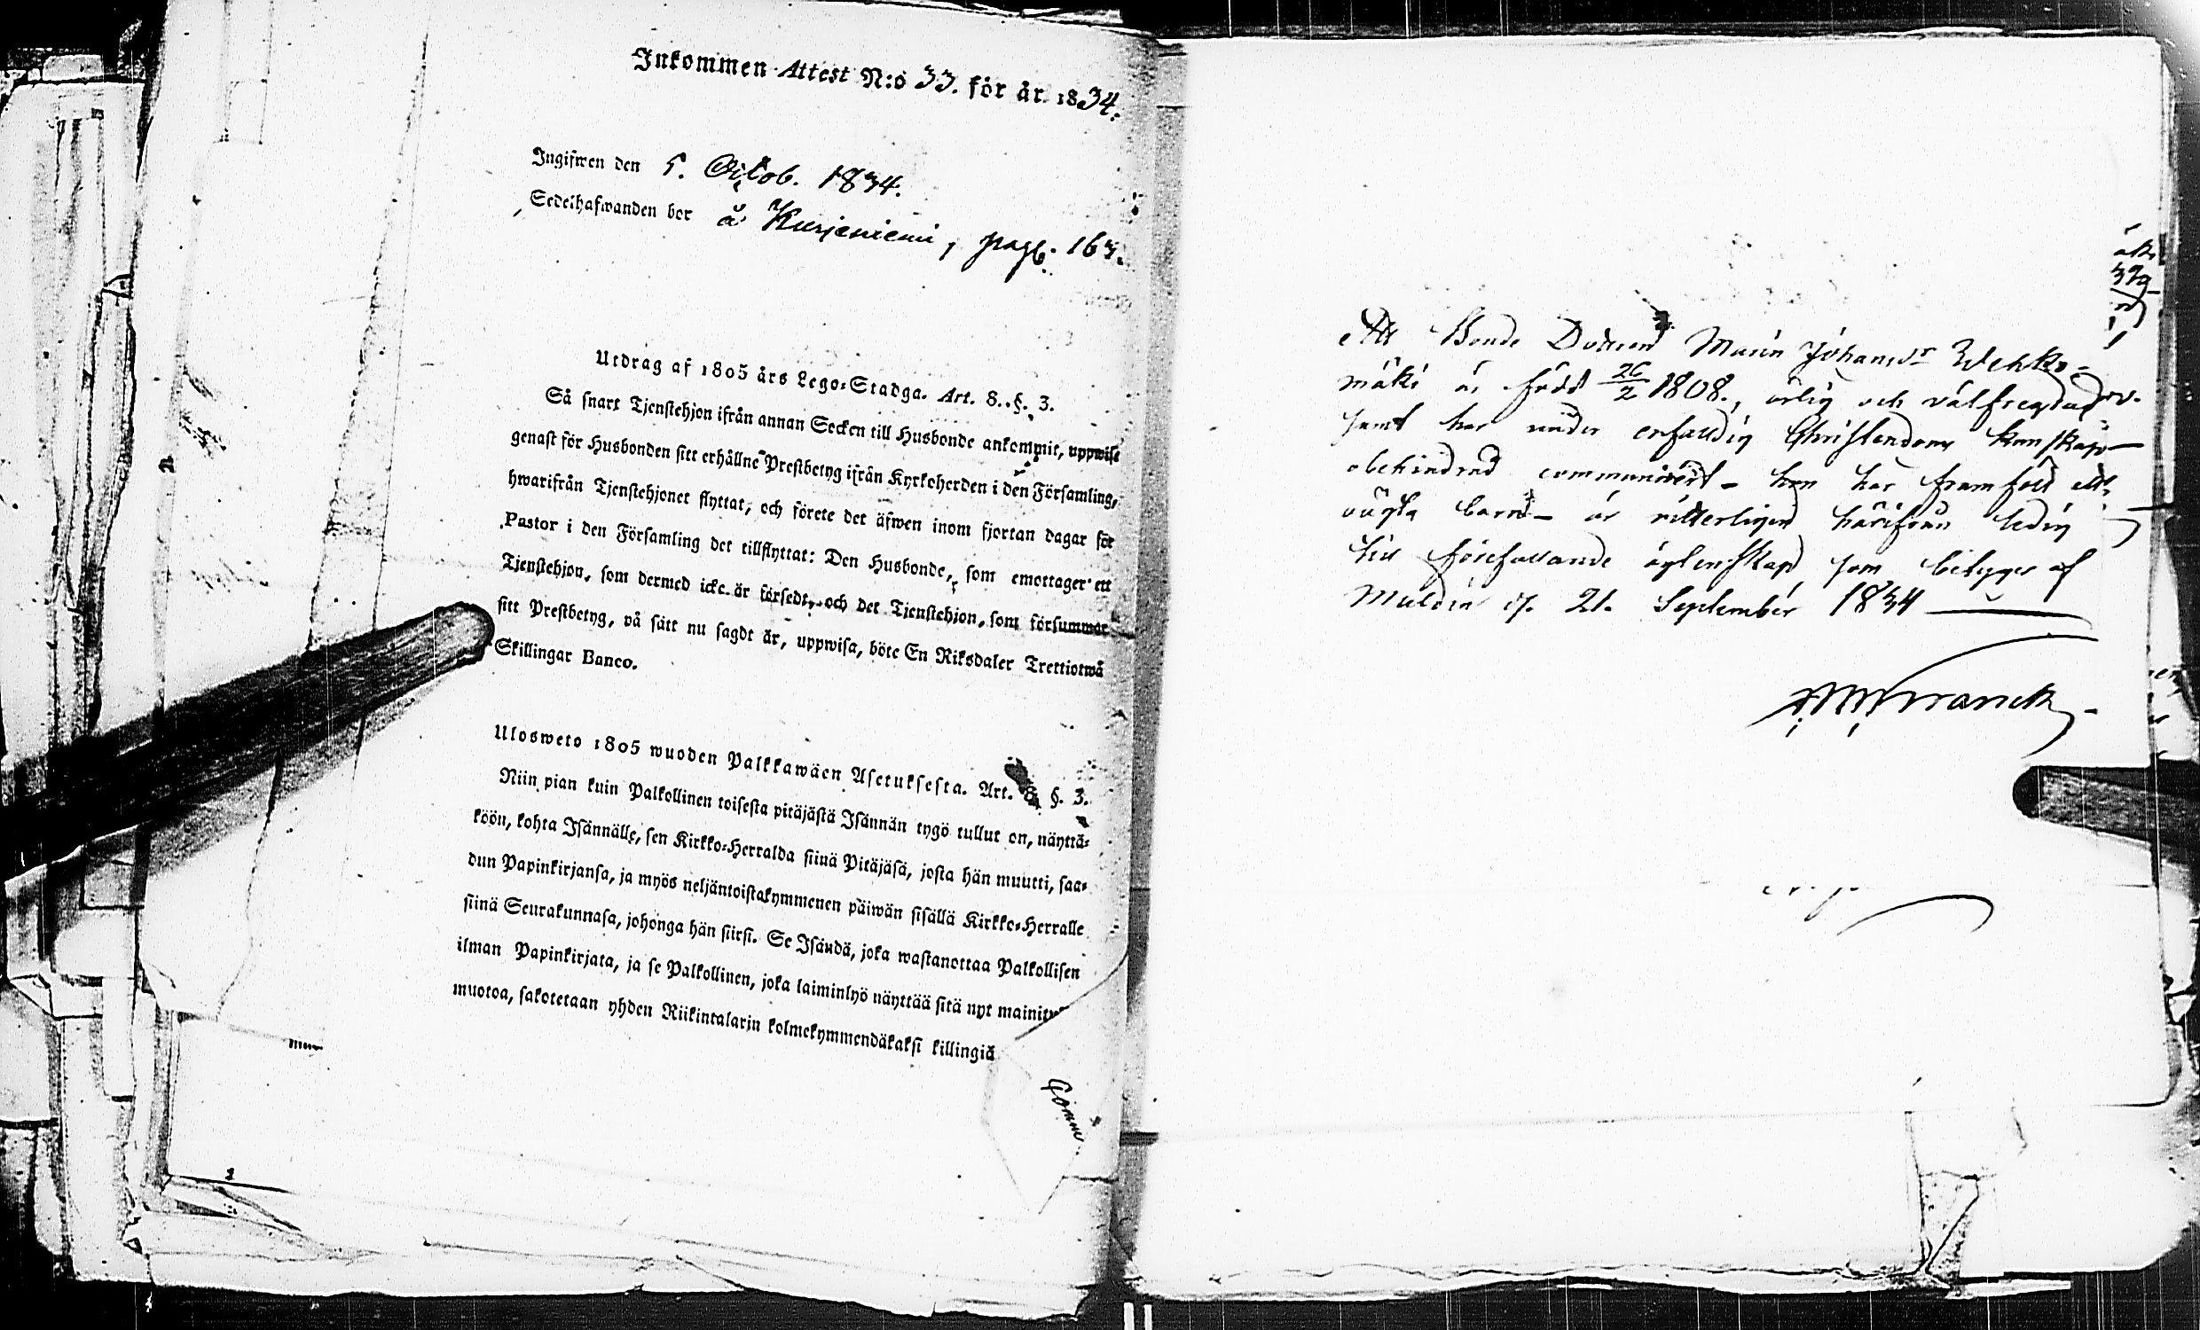 Inkommen Attest N:o 33. för år 1834.
Ingifwen den 5. Octob. 1834.
Sedelhafwanden bor å Kurjeniemi, pag. 163.
Utdrag af 1805 års Lego-Stadga. Art. 8. §. 3.
Så snart Tjenstehjon ifrån annan Socken till Husbonde ankommit, uppwise
genast för Husbonden sitt erhållne Prestbetyg ifrån Kyrkoherden i den Församling,
hwarifrån Tjenstehjonet flyttat, och förete det äfwen inom fjortan dagar för
Pastor i den Församling det tillflyttat: Den Husbonde, som emottager ett
Tjenstehjon, som dermed icke är försedt, och det Tjenstehjon, som försummar
sitt Prestbetyg, på sätt nu sagdt är, uppwisa, böte En Riksdaler Trettiotwå
Skillingar Banco.
Ulosweto 1805 wuoden Palkkawäen Asetuksesta. Art. 8. §. 3.
Niin pian kuin Palkollinen toisesta pitäjästä Isännän tygö tullut on, näyttä-
köön, kohta Isännälle, sen Kirkko-Herralda siinä Pitäjäsä, josta hän muutti, saa-
dun Papinkirjansa, ja myös neljäntoistakymmenen päiwän sisällä Kirkko-Herralle
siinä Seurakunnasa, johonga hän siirsi. Se Isändä, joka wastanottaa Palkollisen
ilman Papinkirjata, ja se Palkollinen, joka laiminlyö näyttää sitä nyt mainitu
muotoa, sakotetaan yhden Riikintalarin kolmekymmendäkaksi killingiä
Att Bonde Dottren Maria Johansdr Wehko-
mäki är född 26/2 1808., ärlig och välfregdad
samt har under enfaldig Christendoms kunskap
obehindrad communicerat - hon har framfödt
oägta barn - är vitterligen härifrån ledig
till förefallande ägtenskap som betygas af
Muldia d. 21. September 1834
Franck